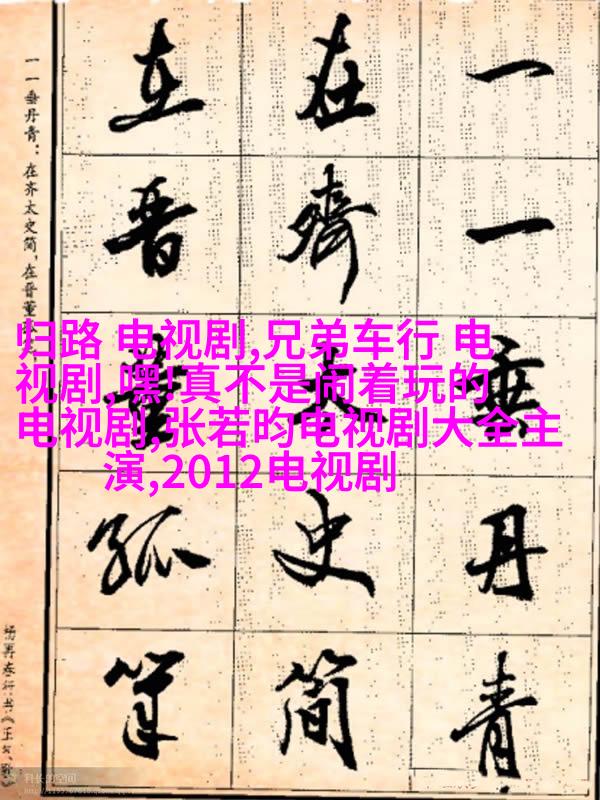 一一垂丹青
在齊太史简
在晋董狐筆
一一垂丹青:在齐太史简,在晋董
杨再春行书《正气歌》
归路 电视剧,兄弟车行 电
视剧,嘿!真不是闹着玩的
电视剧,张若昀电视剧大全主
演,2012电视剧
科长的空间